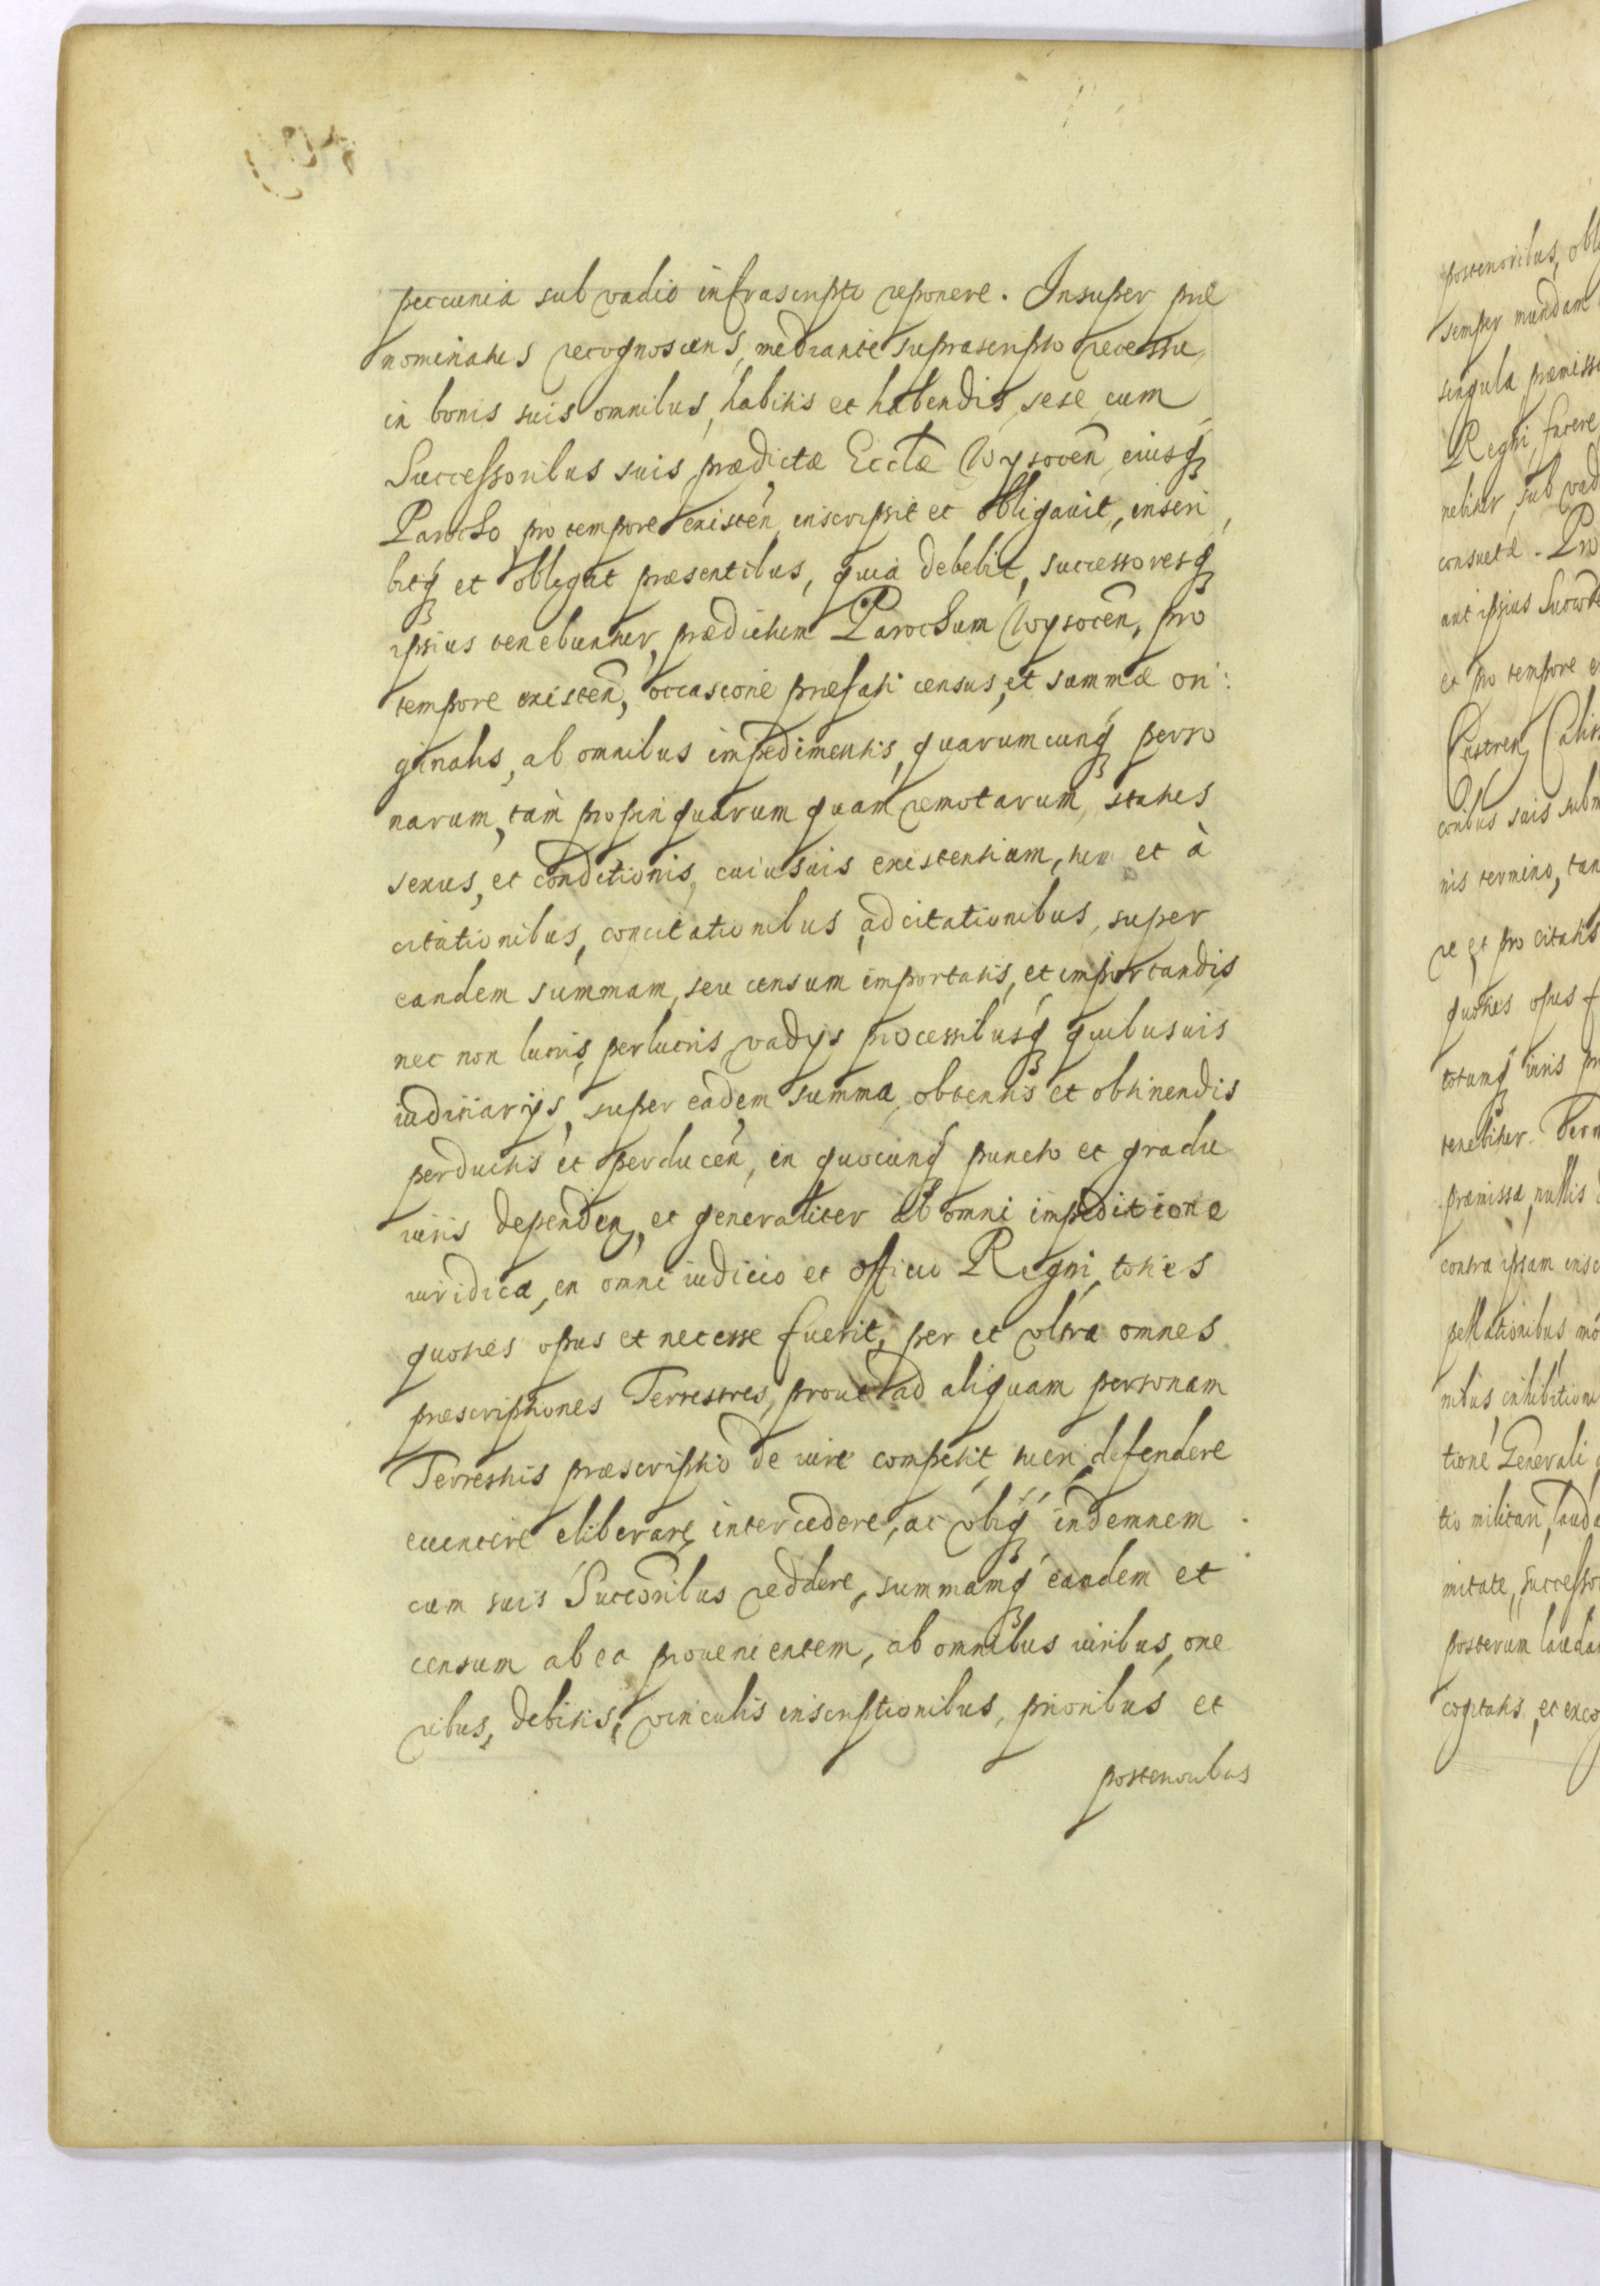 peccunia sub vadio infrascripto reponere. Insuper præ
nominatus recognoscens, mediante suprascripto recessu,
in bonis suis omnibus, habitis et habendis, sese cum
Successoribus suis, prædictæ Ecclæ Wysocen̄, eiusq̃
Parocho pro tempore existen̄, inscripsit et obligauit, inscri
bitq̃ et obligat præsentibus, quia debebit, successoresq̃
ipsius tenebuntur, prædictum Parochum Wysocen̄, pro
tempore existen̄, occasione præfati census, et summæ ori:
ginalis, ab omnibus impedimentis, quarumcunq̃ perso
narum, tàm propinquarum quam remotarum, status
sexus, et conditionis, cuiusuis existentium, et à
citationibus, concitationibus adcitationibus, super
eandem summam, seu censum importatis, et importandis
nec non lucris, perlucris vadys processibusq̃ quibusuis
iudiciarÿs, super eadem summa, obtentis et obtinendis
perductis et perducen̄, in quocunq̃ puncto et gradu
iuris dependen, et generaliter ab omni impeditione
iuridica, in omni iudicio et officio Regni, toties
quoties opus et necesse fuerit, per et vltra omnes
præscriptiones Terrestres, prout ad aliquam personam
Terrestris præscriptio de iure competit, tueri, defendere
euincere eliberare, intercedere, ac vbiq̃ indemnem
cum suis Succōribus reddere, summamq̃ eandem et
censum ab ea prouenientem, ab omnibus iuribus, one
ribus, debitis, vinculis inscriptionibus, prioribus et
posterioribus
posterioribus, obl
semper mundam
singula præmissa
Regni, facere
nebitur, sub vad
consueta. Pro
aut ipsius
et pro tempore e
Castren Calis
suis subm
nis termino, tan
re, et pro citatis
quoties opus f
totumq̃ iuris pr
tenebitur. Term
præmissa, nullis
contra ipsam insc
pellationibus mo
nibus, inhibitioni
tione Generali
tio militari, laud
mitate, Successo
posterum lauda
cogitatis, et exco